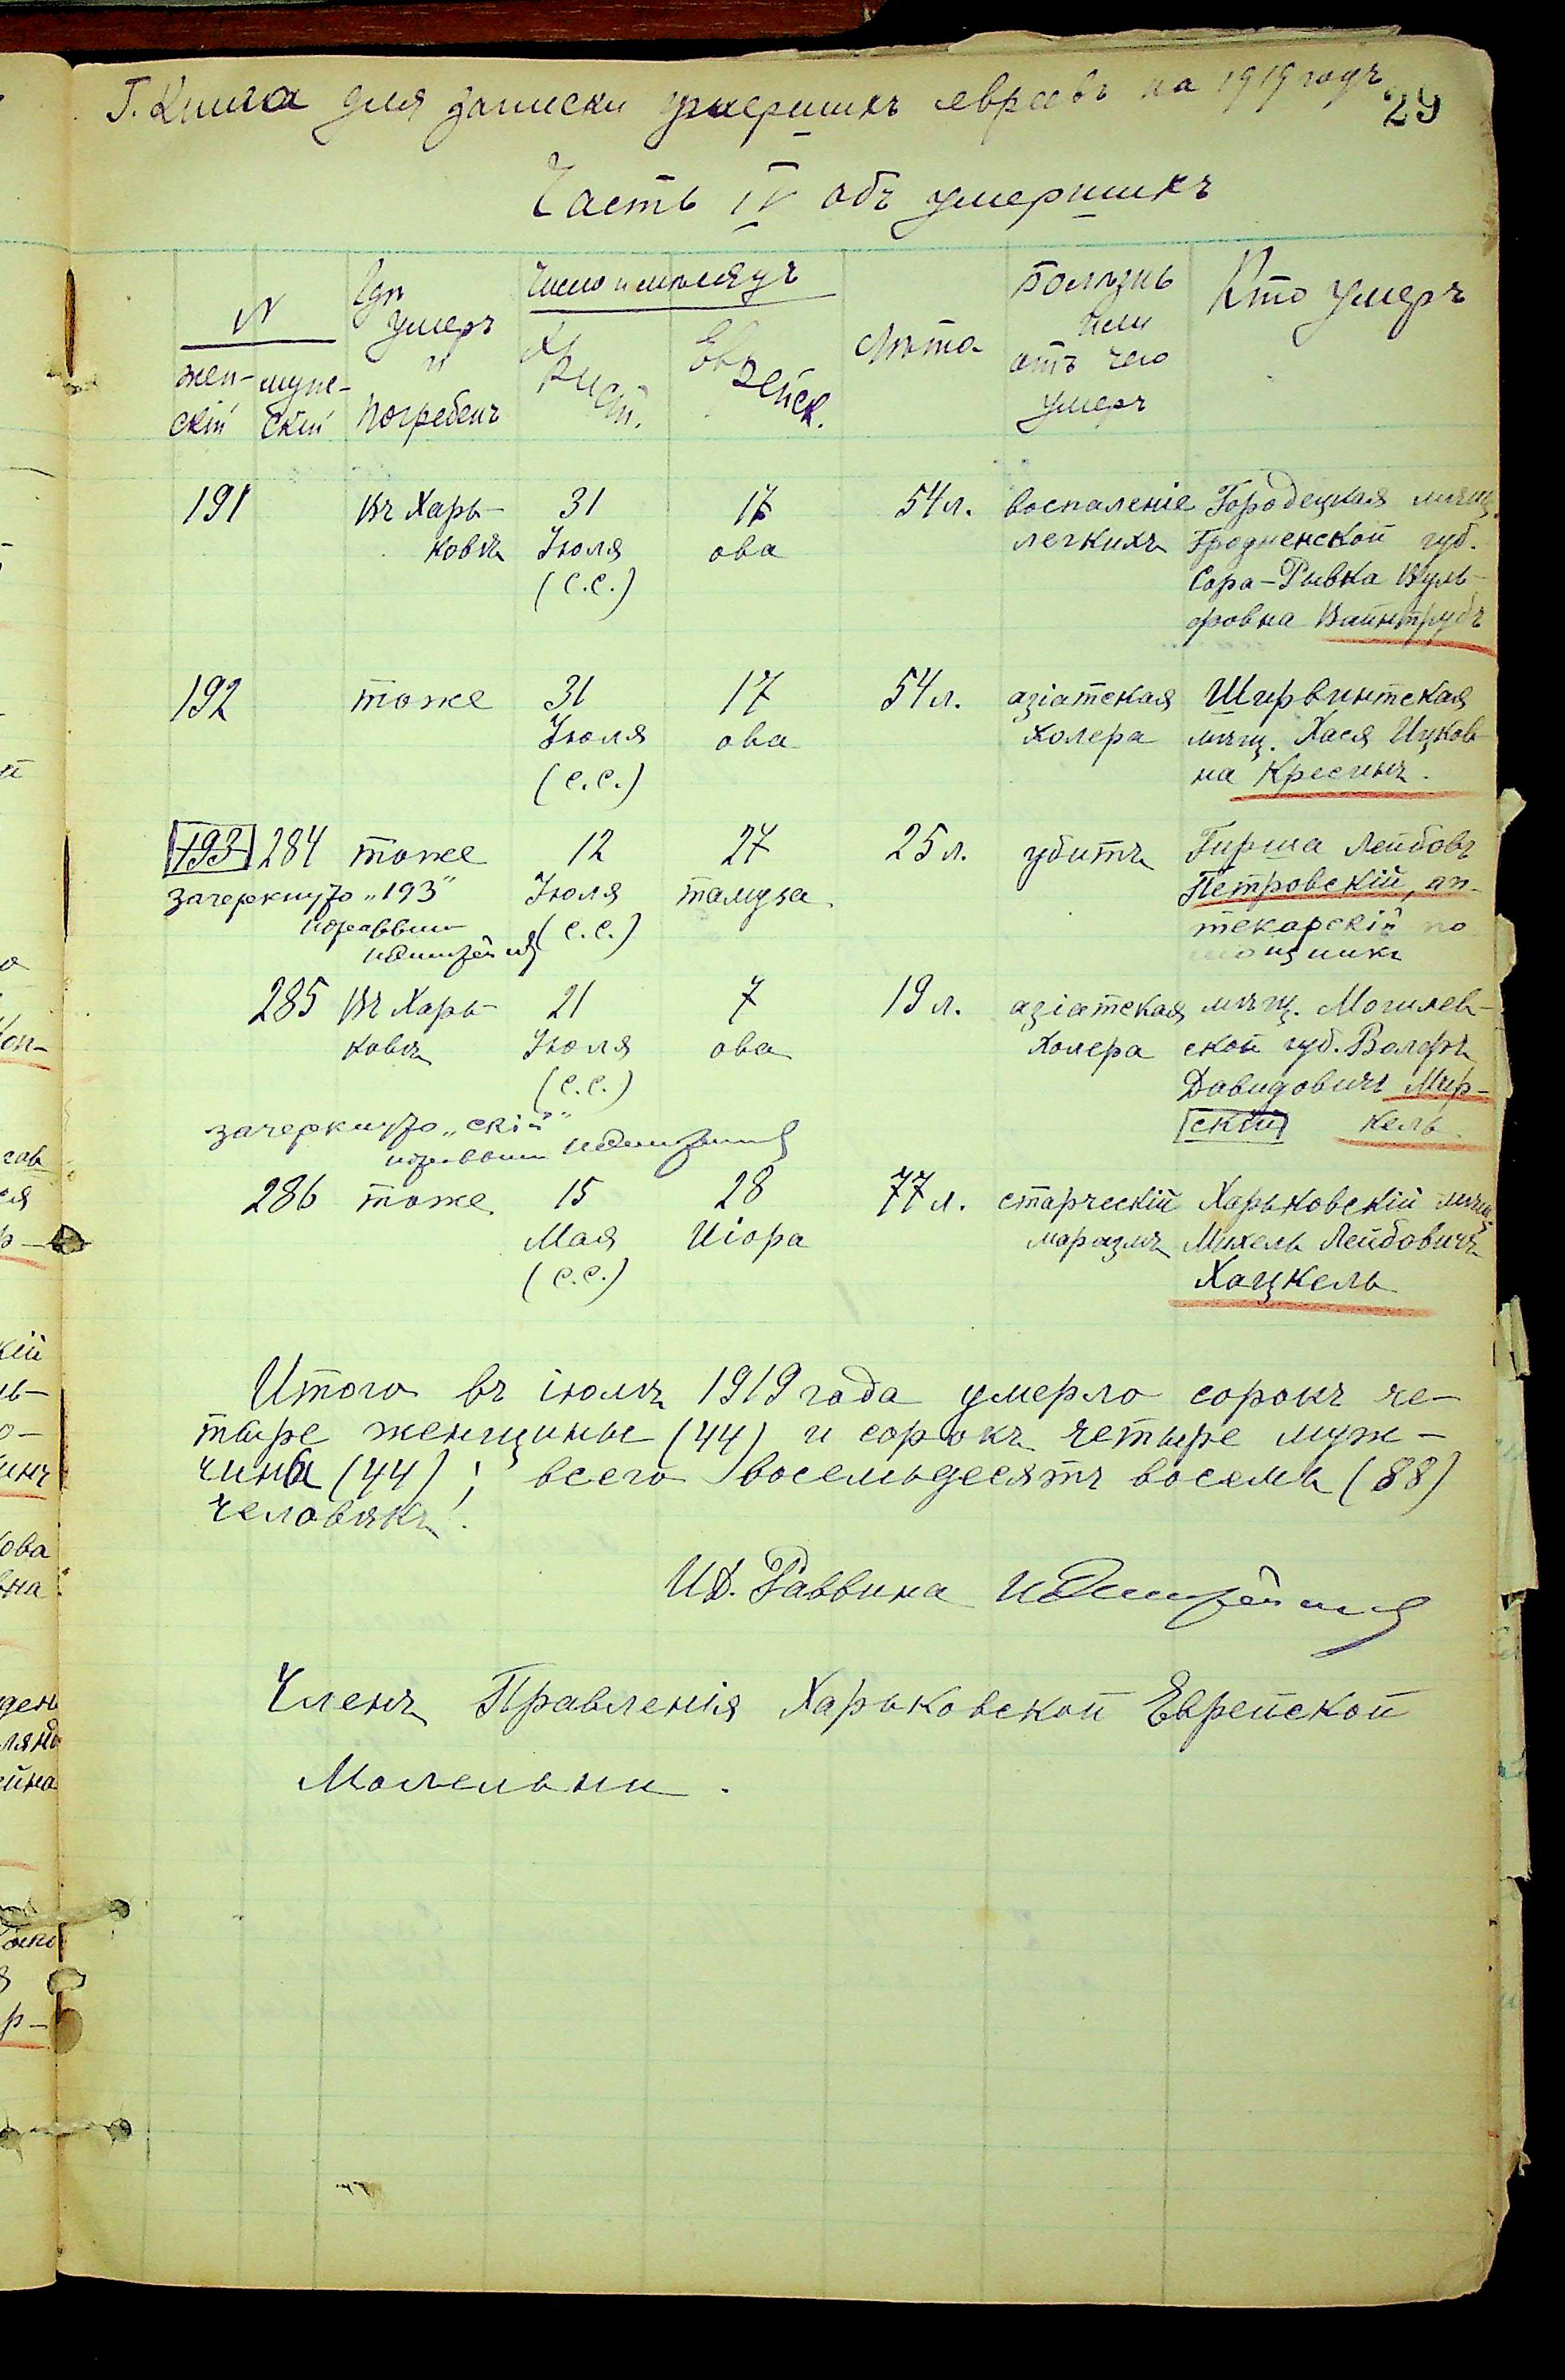 Г. Книга для записки умершихъ евреевъ на 1919 годъ
29
Часть IV объ умершихъ
№
жен- муже-
скій скій
Гдѣ
умеръ
и
погребенъ
Число и мѣсяцъ
Христ.
Еврейск.
Лѣта
Болѣзнь
или
отъ чего
умеръ
Кто умеръ
191 Въ Харь- 31 17 54 л. воспаленіе Городецкая мѣщ.
ковѣ Іюля ова легкихъ Гродненской губ.
(с.с.) Сора-Ривка Вуль-
фовна Вайнтрубъ
192 тоже 31 17 54 л. азіатская Ширвинтская
Іюля ова холера мѣщ. Хася Ицков-
(с.с.) на Кресинъ.
193 284 тоже 12 27 25 л. убитъ Гирша Лейбовъ
зачеркнуто „193“ Іюля тамуза Петровскій, ап-
(с.с.) текарскій по
мощникъ
285 Въ Харь- 21 7 19 л. азіатская мѣщ. Могилев-
ковѣ Іюля ова холера ской губ. Вольфъ
(с.с.) Давидовичъ Мир-
скій кель
зачеркнуто „скій“
286 тоже 15 28 77 л. старческій Харьковскій мѣщ.
Мая Иіора маразмъ Михель Лейбовичъ
(с.с.) Хацкель
Итого въ іюлѣ 1919 года умерло сорокъ че-
тыре женщины (44) и сорокъ четыре муж-
чины (44); всего восемьдесятъ восемь (88)
человѣкъ!
И.д. Раввина
Членъ Правленія Харьковской Еврейской
Молельни.